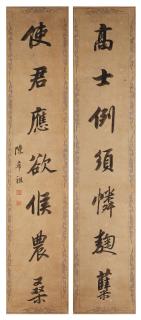 高士例須憐麴蘖
使君應欲候農桑
陳希祖